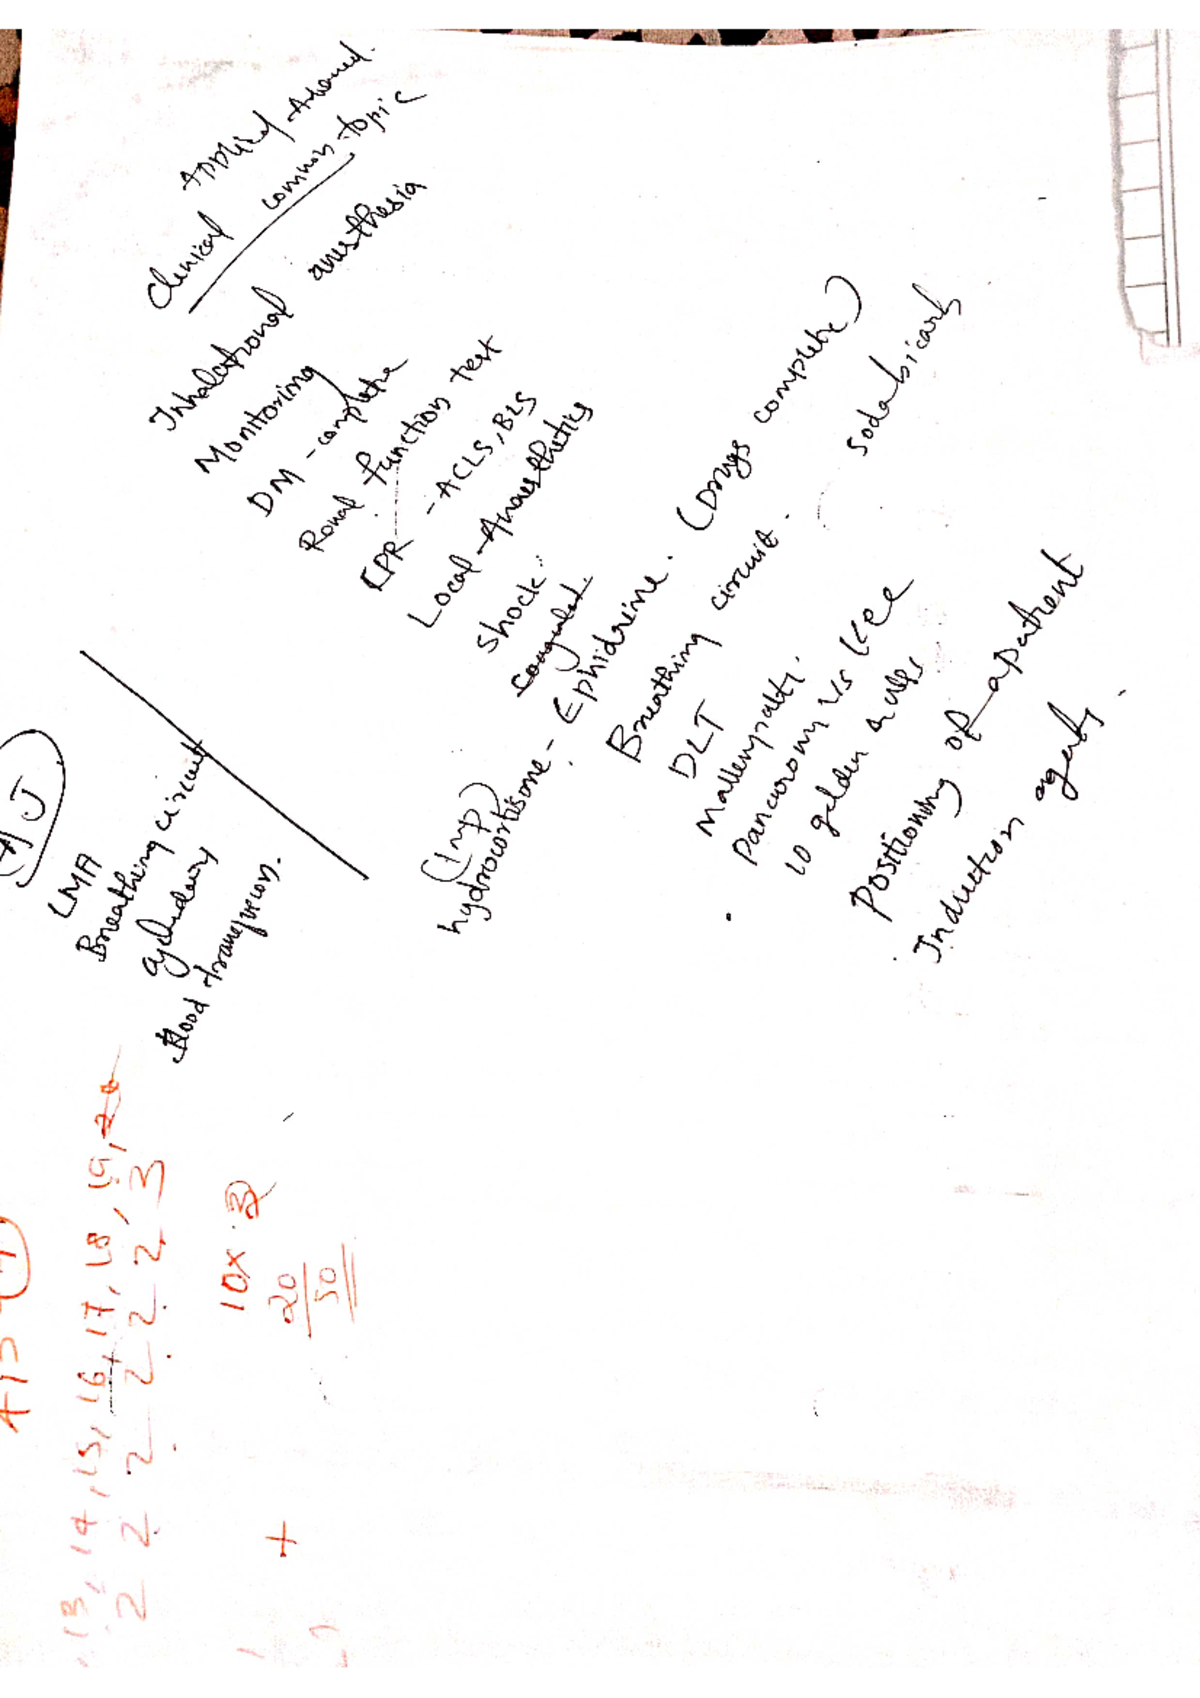 Applied Advanced.
Clinical common topic
Inhalational anesthesia
Monitoring
DM - complete
Ronal function test
CPR - ACLS, BLS
Local Anaesthetics
Shock
(Imp) hydrocortisone - Ephidrine. (Drugs complete)
Breathing circuit. sodabicarb
DLT
Mallempatti.
Pancuronium vs Vec
10 golden rules
Positioning of a patient
Induction agents.
LMA
Breathing circuit
Blood transfusion.
13, 14, 15, 16, 17, 18, 19, 20
2 2 2 2 2 2 3
10 x
20
50
+